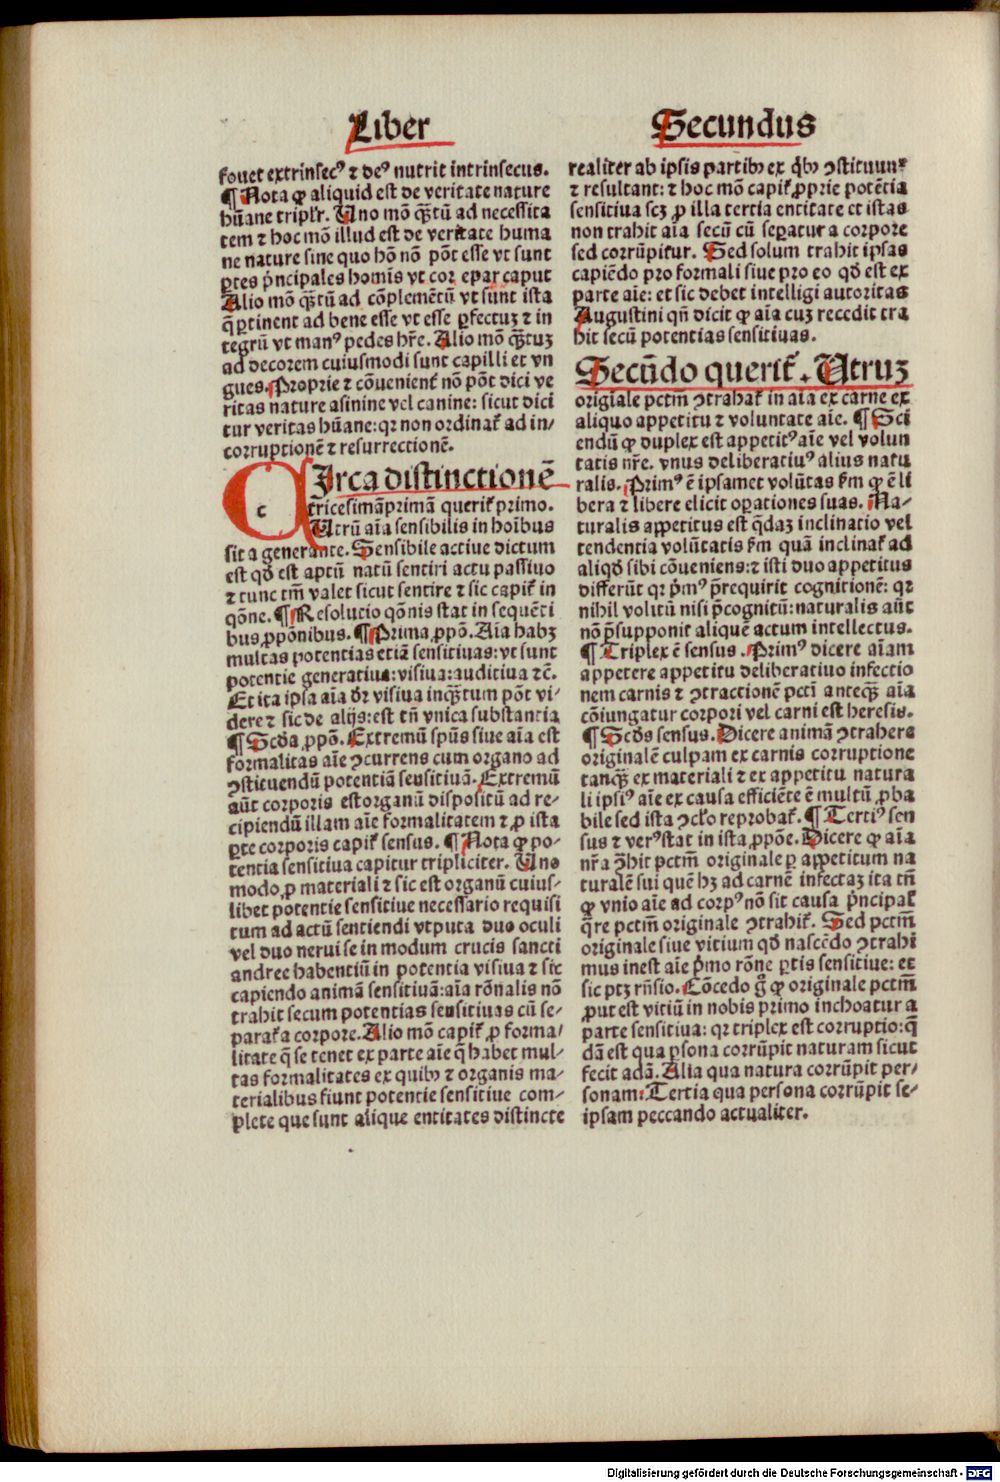 Liber
Secundus
fouet extrinsecꝰ ⁊ deꝰ nutrit intrinsecus.
¶ Nota ꝙ aliquid est de veritate nature
hūane triplr̄. Uno mō q̄ꝫtū ad necessita
tem ⁊ hoc mō illud est de veritate huma
ne nature sine quo hōn nō pōt esse vt sunt
ꝑtes p̄ncipales homīs vt cor epar caput
Alio mō q̄ꝫtū ad cōplementū vt sunt ista
q̄ ꝑtinent ad bene esse vt esse ꝑfectuꝫ ⁊ in
tegrū vt manꝰ pedes hr̄e. Alio mō q̄ꝫtuꝫ
ad decorem cuiusmodi sunt capilli et vn
gues. Proprie ⁊ cōuenient̄ nō pōt dici ve
ritas nature asinine vel canine: sicut dici
tur veritas hūane: qꝛ non ordinat̄ ad in/
corruptionē ⁊ resurrectionē.
CIrca distinctionē
c
tricesimāprimā querit̄ primo.
Utrū aīa sensibilis in hoībus
sit a generante. Sensibile actiue dictum
est qd̄ est aptū natū sentiri actu passiuo
⁊ tunc tm̄ valet sicut sentire ⁊ sic capit̄ in
qōne. ¶ Resolutio qōnis stat in sequēti
bus ꝓpōnibus. ¶ Prima ꝓpō. Aīa habꝫ
multas potentias etiā sensitiuas: vt sunt
potentie generatiua: visiua: auditiua ⁊c̄.
Et ita ipsa aīa dr̄ visiua inq̄ꝫtum pōt vi/
dere ⁊ sic de alijs: est tn̄ vnica substantia
¶ Scd̄a ꝓpō. Extremū spūs siue aīa est
formalitas aīe ꝯcurrens cum organo ad
ꝯstituendū potentiā sensitiuā. Extremū
aūt corporis est organū dispositū ad re/
cipiendū illam aīe formalitatem ⁊ ꝓ ista
ꝑte corporis capit̄ sensus. ¶ Nota ꝙ po/
tentia sensitiua capitur tripliciter. Uno
modo ꝓ materiali ⁊ sic est organū cuius/
libet potentie sensitiue necessario requisi
tum ad actū sentiendi vtputa duo oculi
vel duo nerui se in modum crucis sancti
andree habentiū in potentia visiua ⁊ sic
capiendo animā sensitiuā: aīa rōnalis nō
trahit secum potentias sensitiuas cū se/
parat̄a corpore. Alio mō capit̄ ꝓ forma/
litate q̄ se tenet ex parte aīe q̄ habet mul/
tas formalitates ex quibꝰ ⁊ organis ma/
terialibus fiunt potentie sensitiue com/
plete que sunt alique entitates distincte
realiter ab ipsis partibꝰ ex qͥbꝰ ꝯstituunᷓ
⁊ resultant: ⁊ hoc mō capit̄ ꝓprie potētia
sensitiua scꝫ ꝓ illa tertia entitate et istas
non trahit aīa secū cū seꝑatur a corpore
sed corrūpitur. Sed solum trahit ipsas
capiēdo pro formali siue pro eo qd̄ est ex
parte aīe: et sic debet intelligi autoritas
Augustini qn̄ dicit ꝙ aīa cuꝫ recedit tra
hit secū potentias sensitiuas.
Secūdo querit̄. Utruꝫ
origīale pctm̄ ꝯtrahat̄ in aīa ex carne ex
aliquo appetitu ⁊ voluntate aīe. ¶ Sci
endū ꝙ duplex est appetitꝰ aīe vel volun
tatis nr̄e. vnus deliberatiuꝰ alius natu
ralis. Primꝰ ē ipsamet volūtas ẜm ꝙ ē li
bera ⁊ libere elicit oꝑationes suas. Na/
turalis appetitus est q̄daꝫ inclinatio vel
tendentia volūtatis ẜm quā inclinat̄ ad
aliqd̄ sibi cōueniens: ⁊ isti duo appetitus
differūt qꝛ pͥmꝰ p̄requirit cognitionē: qꝛ
nihil volitū nisi p̄cognitū: naturalis aūt
nō p̄supponit aliquē actum intellectus.
¶ Triplex ē sensus. Primꝰ dicere aīam
appetere appetitu deliberatiuo infectio
nem carnis ⁊ ꝯtractionē pctī anteq̄ꝫ aīa
cōiungatur corpori vel carni est heresis.
¶ Scd̄s sensus. Dicere animā ꝯtrahere
originalē culpam ex carnis corruptione
tanq̄ꝫ ex materiali ⁊ ex appetitu natura
li ipsiꝰ aīe ex causa efficiēte ē multū ꝓba
bile sed ista ꝯclō reprobat̄. ¶ Tertiꝰ sen
sus ⁊ verꝰ stat in ista ꝓpōe. Dicere ꝙ aīa
nr̄a ꝯ̄hit pctm̄ originale ꝑ appetitum na
turalē sui quē hꝫ ad carnē infectaꝫ ita tn̄
ꝙ vnio aīe ad corpꝰ nō sit causa p̄ncipal̄
q̄re pctm̄ originale ꝯtrahit̄. Sed pctm̄
originale siue vitium qd̄ nascēdo ꝯtrahi
mus inest aīe pͥmo rōne ꝑtis sensitiue: et
sic ptꝫ rn̄sio. Cōcedo gͦ ꝙ originale pctm̄
ꝓut est vitiū in nobis primo inchoatur a
parte sensitiua: qꝛ triplex est corruptio: q̄
dā est qua ꝑsona corrūpit naturam sicut
fecit adā. Alia qua natura corrūpit per/
sonam: Tertia qua persona corrūpit se/
ipsam peccando actualiter.
Digitalisierung gefördert durch die Deutsche Forschungsgemeinschaft - DFG